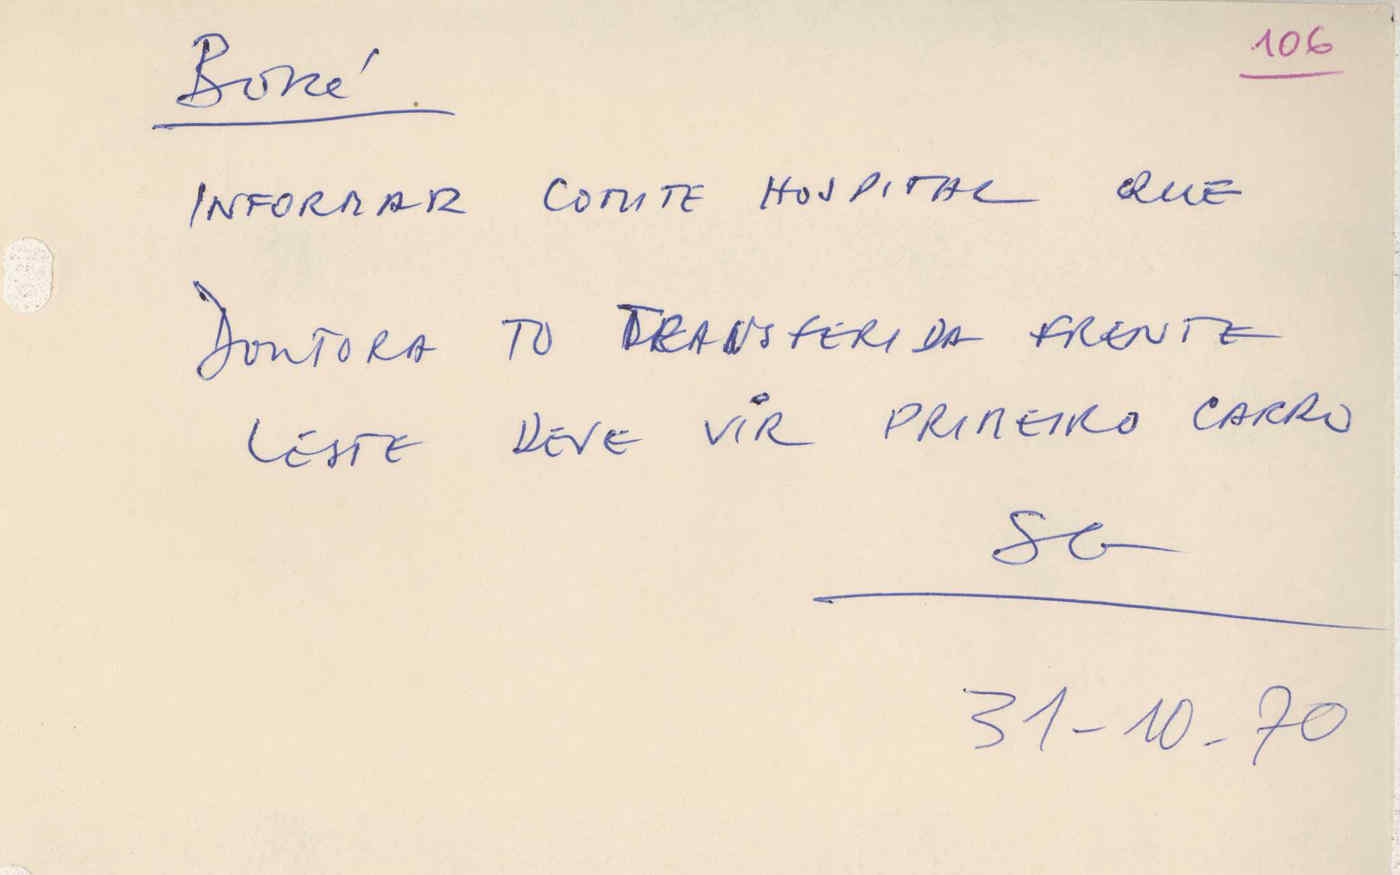 106
Boké
INFORMAR COMITE HOSPITAL QUE
DOUTORA TO TRANSFERIDA FRENTE
LESTE DEVE VIR PRIMEIRO CARRO
SG
31-10-70